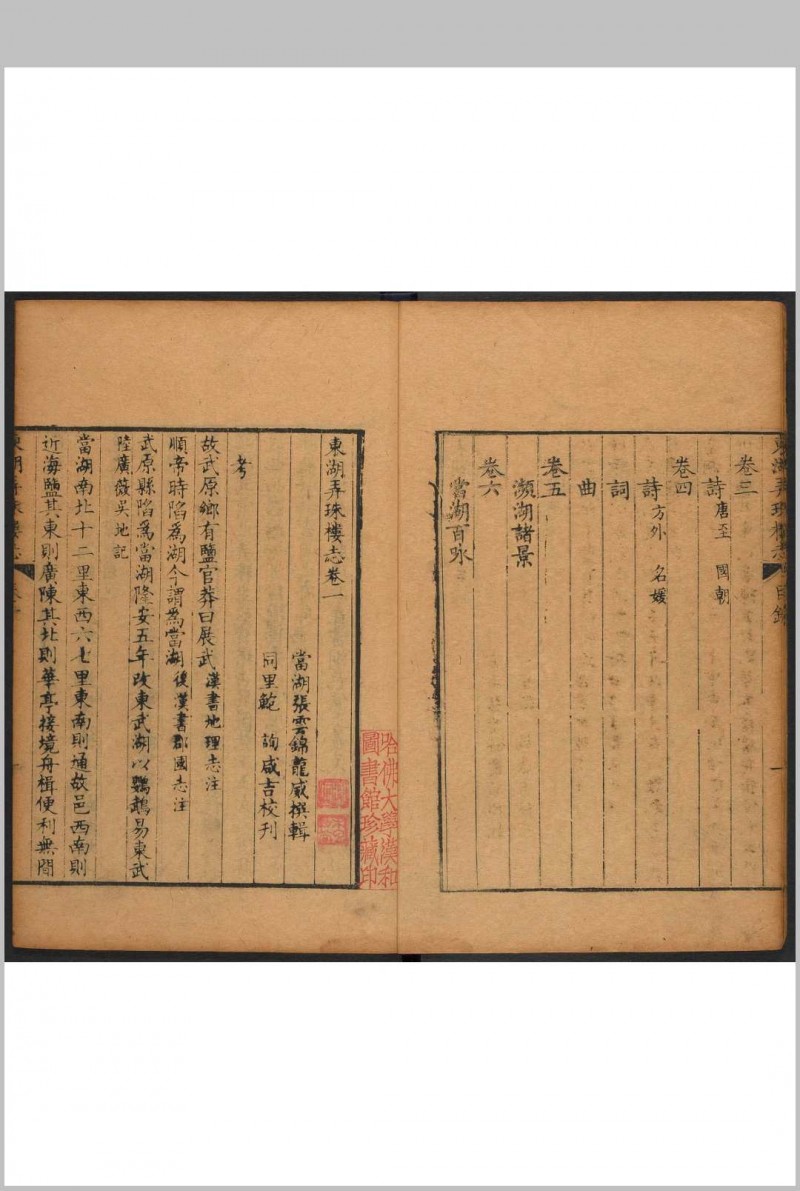 卷三
詩 唐至 國朝
卷四
詩 方外 名媛
詞
曲
卷五
瀕湖諸景
卷六
當湖百咏
東湖弄珠樓志卷一
當湖張雲錦龍威撰輯
同里範 詢咸吉校刊
考
故武原鄉有鹽官莽曰展武 漢書地理志注
順帝時陷為湖今謂為當湖 後漢書郡國志注
武原縣陷為當湖隆安五年改東武湖以鸚鵡易東武
陸廣薇吴地記
當湖南北十二里東西六七里東南則通故邑西南則
近海鹽其東則廣陳其北則華亭接境舟楫便利無間
哈佛大學漢和
圖書館珍藏印